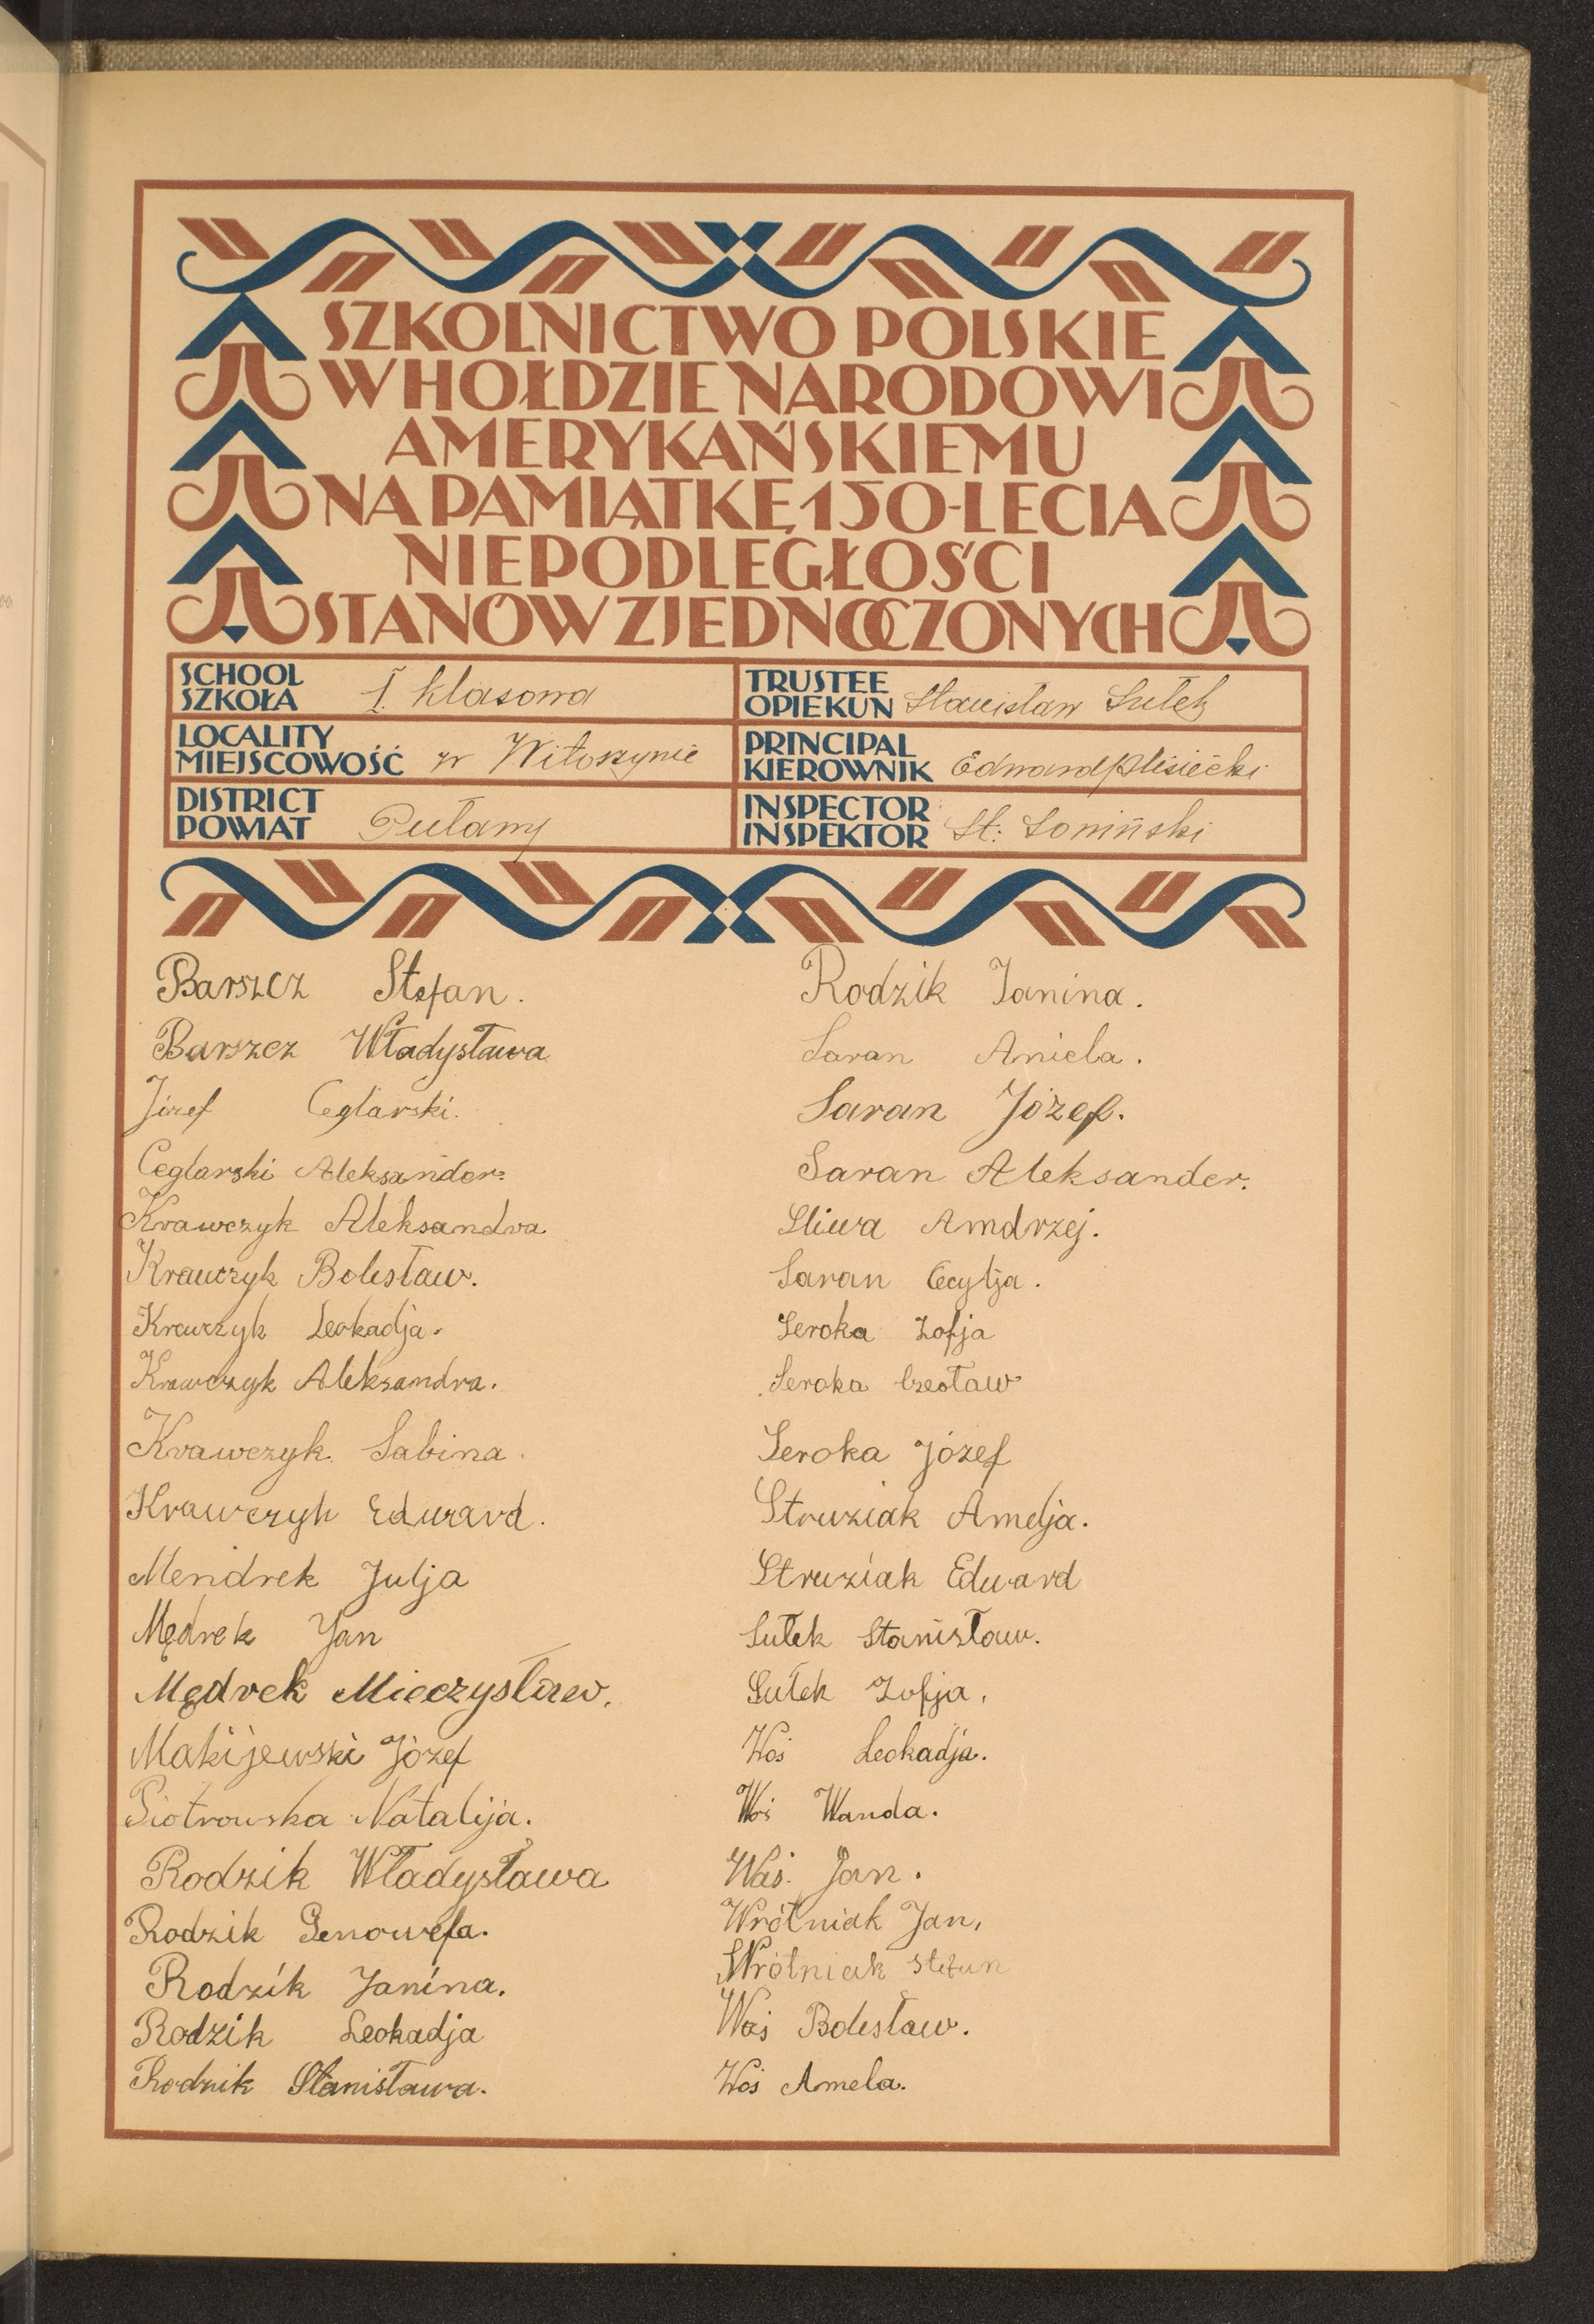 SZKOLNICTWO POLSKIE
W HOŁDZIE NARODOWI
AMERYKAŃSKIEMU
NA PAMIĄTKĘ 150-LECIA
NIEPODLEGŁOŚCI
STANÓW ZJEDNOCZONYCH
SCHOOL
SZKOŁA I. klasowa
TRUSTEE
OPIEKUN Stanisław Sułek
LOCALITY
MIEJSCOWOŚĆ w Witoszynie
PRINCIPAL
KIEROWNIK Edward Plisiecki
DISTRICT
POWIAT Puławy
INSPECTOR
INSPEKTOR St. Łoniński
Barszcz Stefan.
Barszcz Władysława
Józef Ceglarski.
Ceglarski Aleksander.
Krawczyk Aleksandra
Krawczyk Bolesław.
Krawczyk Leokadja.
Krawczyk Aleksandra.
Krawczyk Sabina.
Krawczyk Edward.
Mendrek Julja
Mędrek Jan
Mędrek Mieczysław.
Makijewski Józef
Piotrowska Natalija.
Rodzik Władysława
Rodzik Genowefa.
Rodzik Janina.
Rodzik Leokadja
Rodzik Stanisława.
Rodzik Janina.
Saran Aniela.
Saran Józef.
Saran Aleksander.
Sliwa Amdrzej.
Saran Cecylja.
Seroka Zofja
Seroka Czesław
Seroka Józef
Struziak Amelja.
Struziak Edward
Sułek Stanisław.
Sułek Zofja.
Woś Leokadja.
Woś Wanda.
Waś. Jan.
Wrótniak Jan,
Wrótniak Stefan
Waś Bolesław.
Woś Amela.